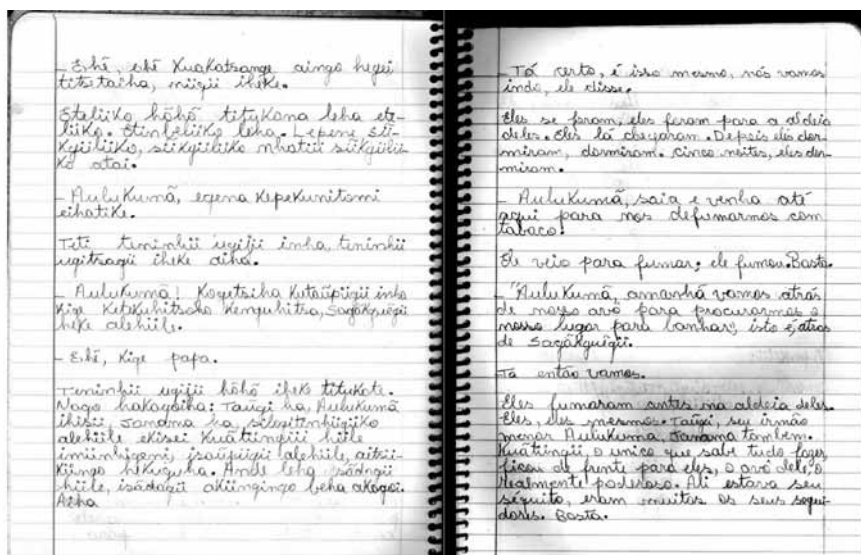 - Ehẽ, ehẽ Kuakatsange aingo hegei
titsetaiha, nügü iheke.
Eteliiko hõhõ titukona leha ete-
liiko. Etinbeliiko leha. Lepene sü-
kgüliiko, sükgüliiko nhatüi sükgülü-
ko atai.
- Aulukumã, egena kepekunitomi
cihatike.
Teti teninhü ugijü inha, teninhü
ugitsagü iheke aiha.
- Aulukumã! Kogetsiha kutaũpügü inha
kige Ketakuhitsoho Kenguhitsa, Sagãkguẽgü
heke alehüle.
- Ehẽ, Kige papa.
Teninhü ugijü hõhõ iheko titukote.
Nago hakagoiha: Taũgi ha, Aulukumã
ihisü, Janama ha,
alehüle ekisei Kuãtüngüi hüle
isaũpügü alehüle,
hekuguha. Ande leha isãdagü
hüle, isãdagü akiingingo beha akagoi.
Aiha
- Tá certo, é isso mesmo, nós vamos
indo, ele disse.
Eles se foram, eles foram para a aldeia
deles. Eles lá chegaram. Depois eles dor-
miram, dormiram. Cinco noites, eles dor-
miram.
- Aulukumã, saia e venha até
aqui para nos defumarmos com
tabaco!
Ele veio para fumar; ele fumou. Basta.
- "Aulukumã, amanhã vamos atrás
de nosso avô para procurarmos o
nosso lugar para banhar", isto é, atrás
de Sagãkguẽgü.
- Tá então vamos.
Eles fumaram antes na aldeia deles.
Eles, eles mesmos. Taũgi, seu irmão
menor Aulukumã, Janama também.
Kuãtüngü, o unico que sabe tudo fazer,
ficou de frente para eles, o avô dele, o
realmente poderoso. Ali estava seu
séquito, eram muitos os seus segui-
dores. Basta.